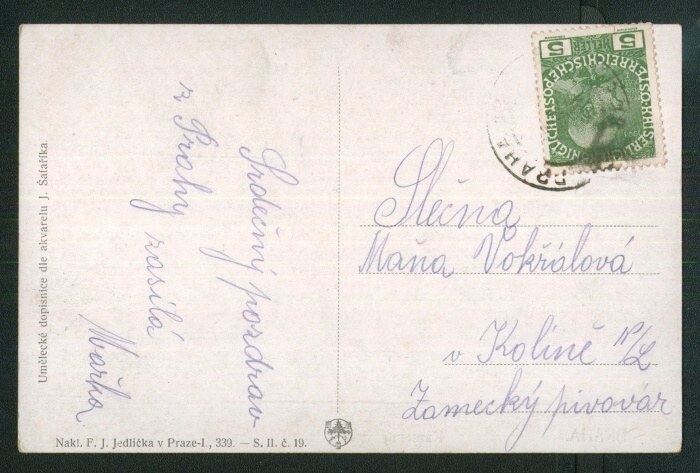 Umělecké dopisnice dle akvarelu J. Šafaříka.
Srdečný pozdrav
z Prahy zasílá
Mařka
Nakl. F. J. Jedlička v Praze-I., 339. — S. II. č. 19.
5 HELLER 5
KAIS. KÖNIGLICHE ÖSTERREICHISCHE POST
PRAHA
Slečna
Maňa Vokřálová
v Kolíně n/L
Zamecký pivovár